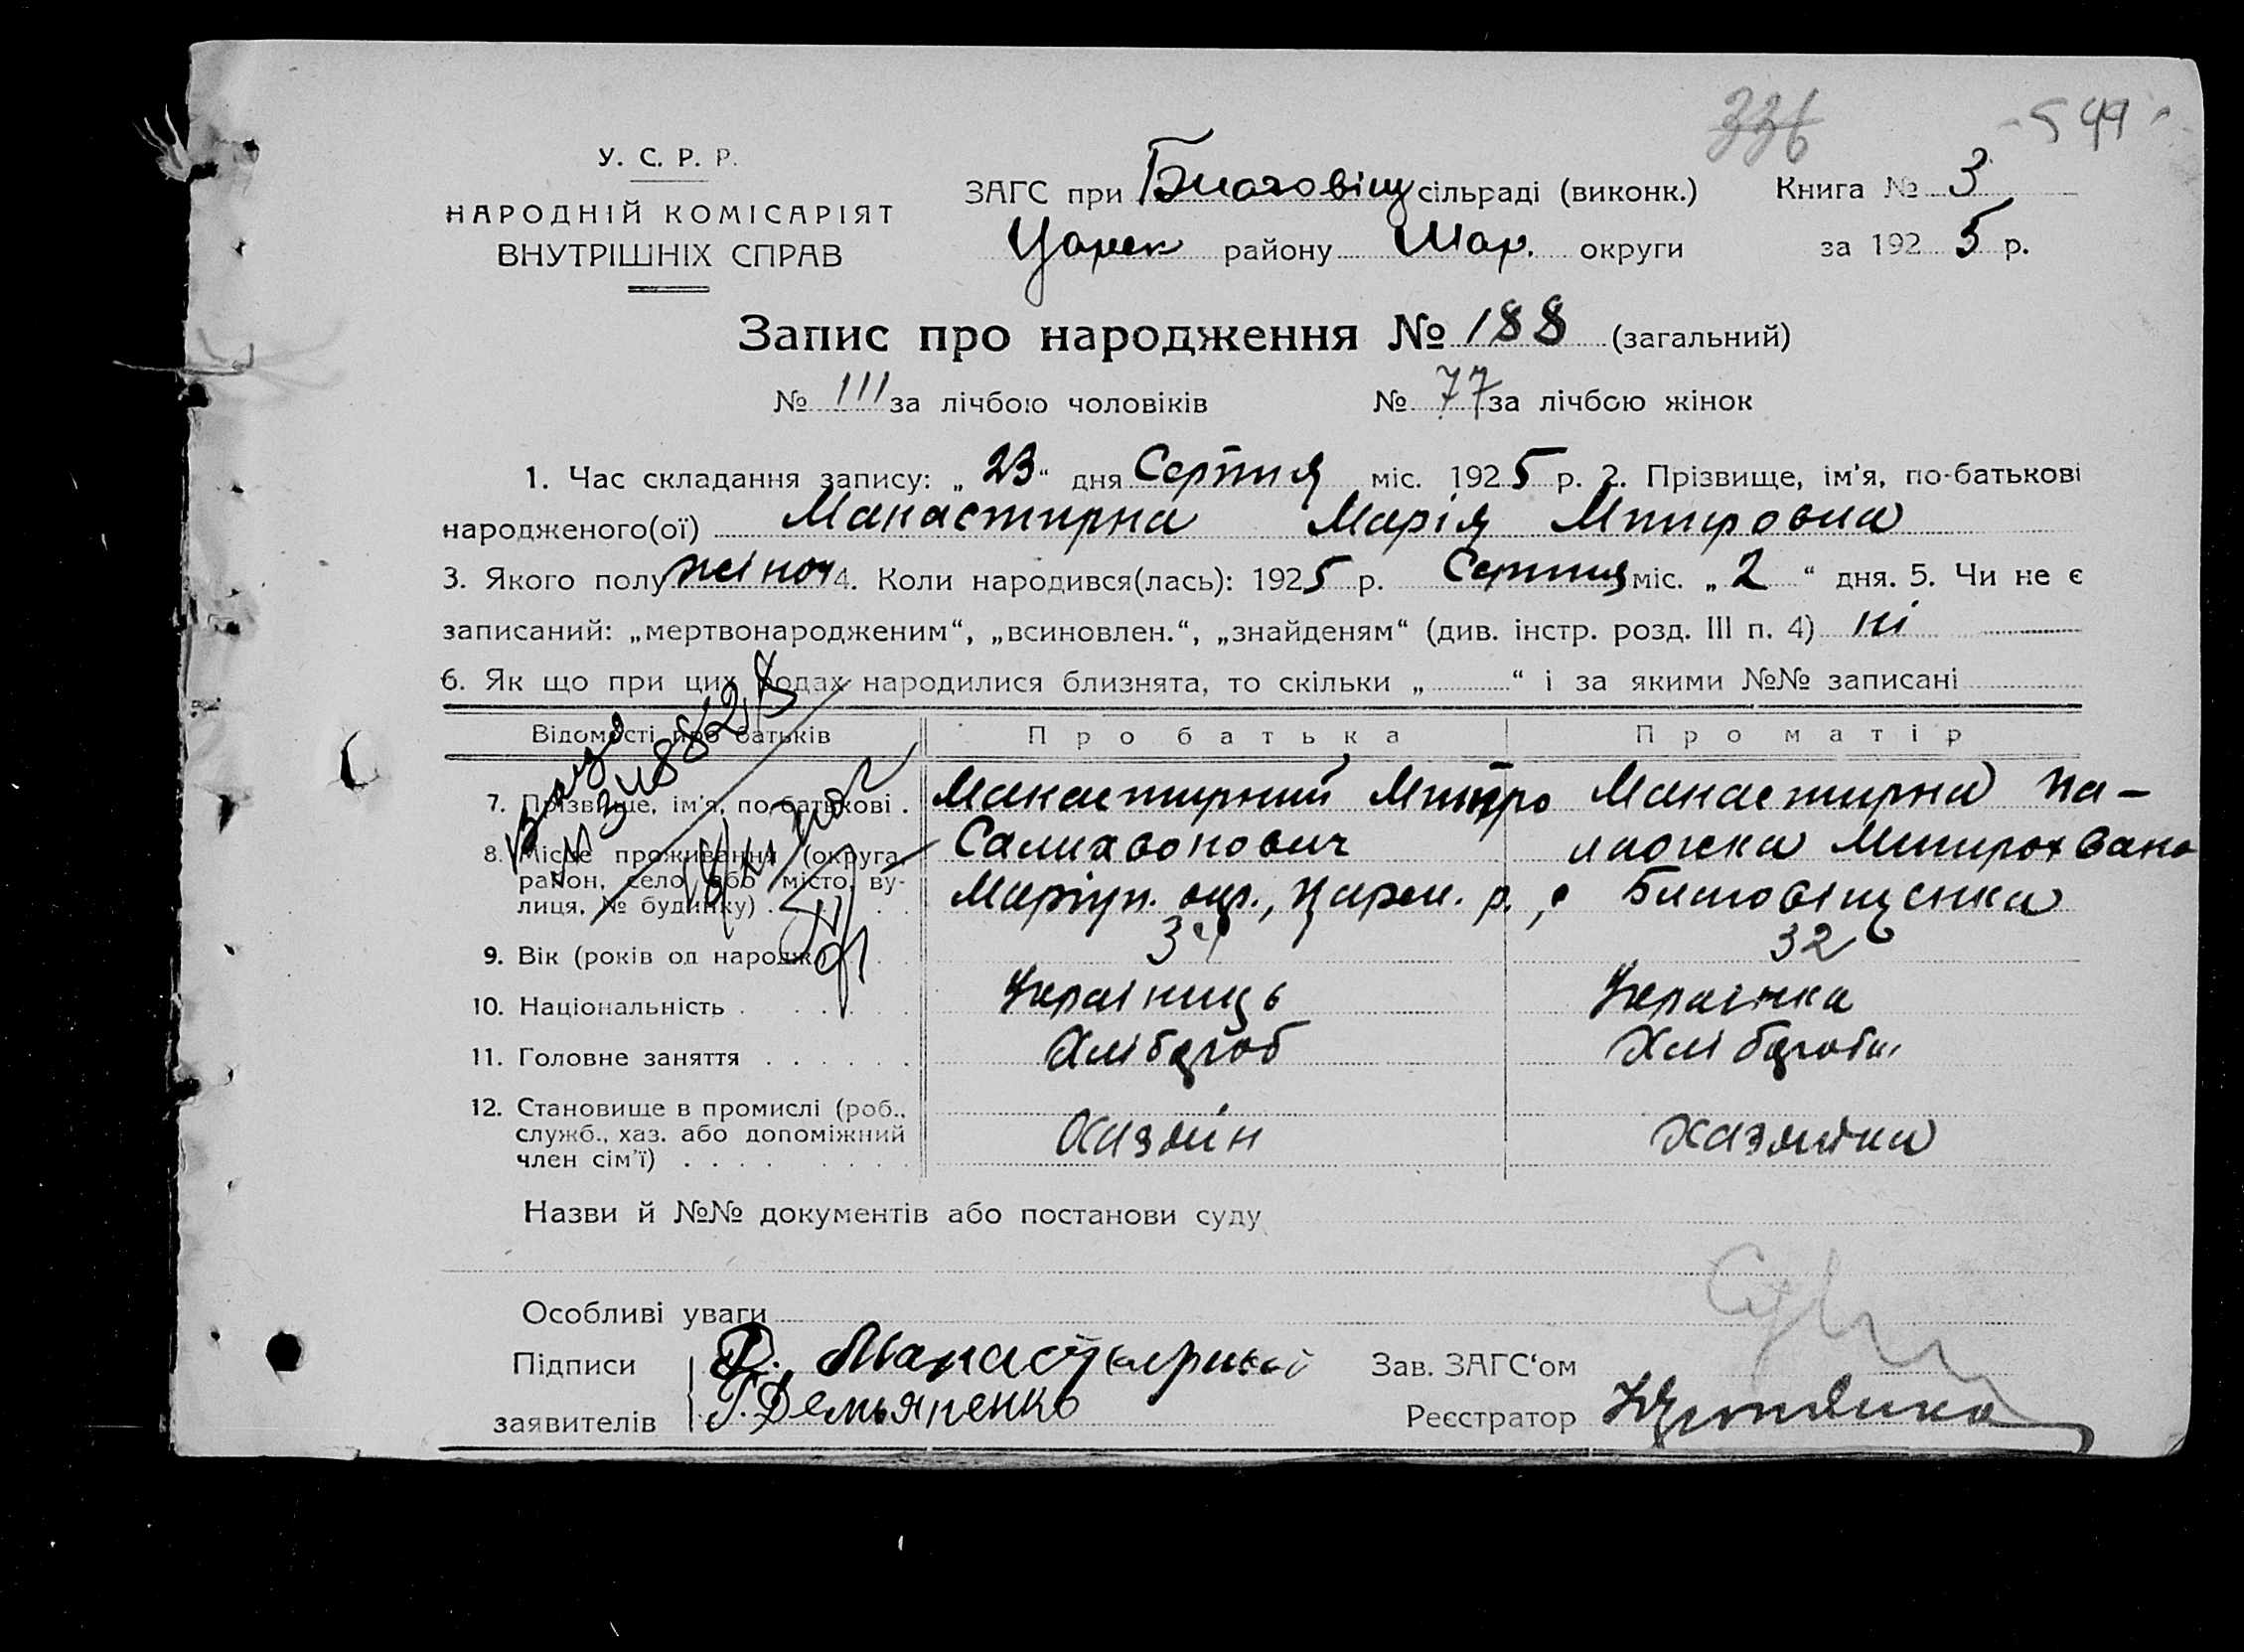 336 544
У. С. Р. Р.
НАРОДНІЙ КОМІСАРІЯТ
ВНУТРІШНІХ СПРАВ
ЗАГС при Благовіщ сільраді (виконк.) Книга № 3
Царек району Мар. округи за 1925 р.
Запис про народження № 188 (загальний)
№ 111 за лічбою чоловіків № 77 за лічбою жінок
1. Час складання запису: „23“ дня Серпня міс. 1925 р. 2. Прізвище, ім'я, по-батькові
народженого(ої) Манастирна Марія Митровна
3. Якого полу жіноч 4. Коли народився(лась): 1925 р. Серпня міс. „2“ дня. 5. Чи не є
записаний: „мертвонародженим“, „всиновлен.“, „знайденям“ (див. інстр. розд. III п. 4) ні
6. Як що при цих родах народилися близнята, то скільки „ “ і за якими №№ записані
Відомості про батьків Про батька Про матір
7. Прізвище, ім'я, по-батькові . Манастирний Митро Манастирна Па-
8. Місце проживання (округа, район, село або місто, вулиця, № будинку) Маріуп. окр., Царек. р.,
9. Вік (років од народж.) 34 32
10. Національність Україниць Українка
11. Головне заняття Хлібороб
12. Становище в промислі (роб.,
служб., хаз. або допоміжний Хазяін Хазяйка
член сім'ї)
Назви й №№ документів або постанови суду
Особливі уваги
Підписи Зав. ЗАГС‘ом
заявителів Г. Демьяненко Реєстратор